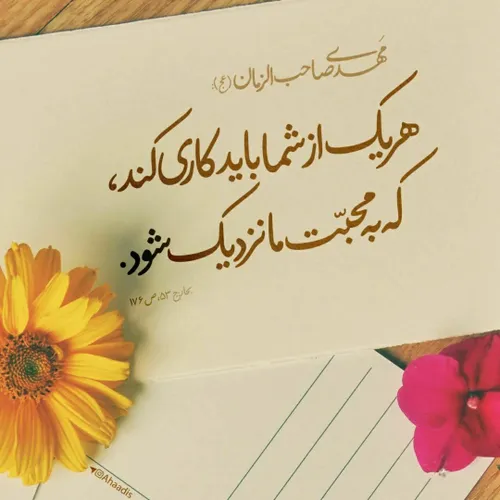 مهدی صاحب الزمان (عج):
هر یک از شما باید کاری کند،
که به محبّت ما نزدیک شود.
بحار ج ۵۳، ص ۱۷۶
@Ahaadis